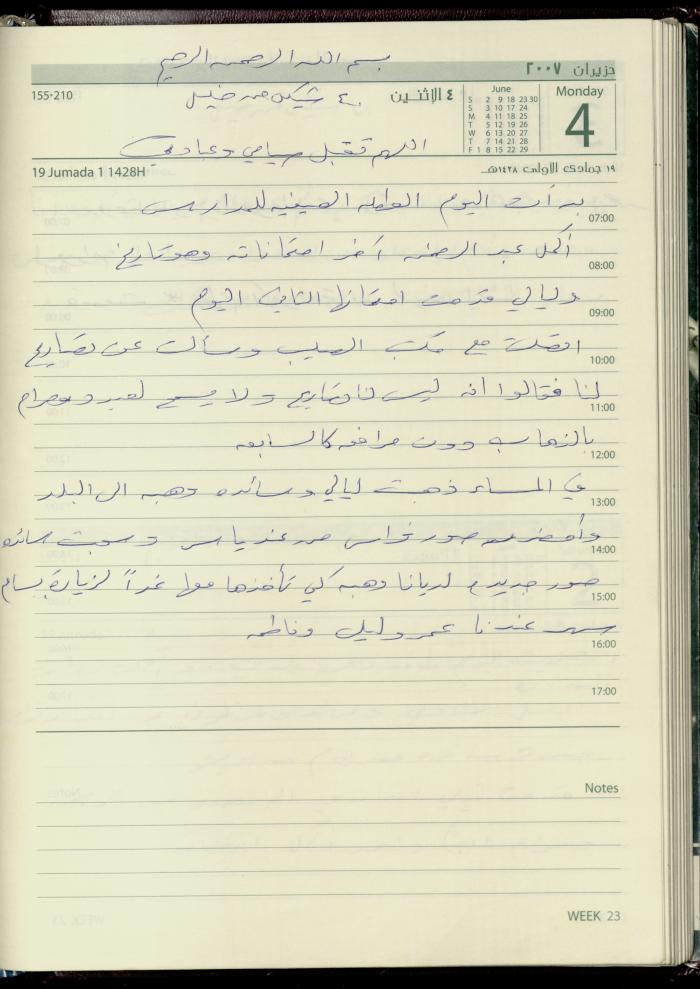 بسم الله الرحمن الرحيم
حزيران ٢٠٠٧
155-210
٤٠ شيكل من
٤ الإثنين
June
S 2 9 16 23 30
S 3 10 17 24
M 4 11 18 25
T 5 12 19 26
W 6 13 20 27
T 7 14 21 28
F 1 8 15 22 29
Monday
4
اللهم تقبل صيامي وعبادتي
19 Jumada 1 1428H
١٩ جمادى الأولى ١٤٢٨هـ
بدأت اليوم العطله الصيفيه للمدارس
07:00
أكمل عبد الرحمن آخر امتحاناته وهو تاريخ
08:00
وليالي قدمت امتحانها الثاني اليوم
09:00
اتصلت مع مكتب الصليب وسألت عن تصاريح
10:00
لنا فقالوا انه ليس لنا تصاريح ولا يسمح لعبد و
11:00
بالذهاب دون مرافق كالسابعه
12:00
في المساء ذهبت ليالي وسائده وهبه الى البلد
13:00
وأحضرت صور فراس من عند ياسر وسحبت سائده
14:00
صور جديده لديانا وهبه كي تأخذها معها غداً لزيارة بسام
15:00
سهر عندنا عمر وليلى وفاطمه
16:00
17:00
Notes
WEEK 23